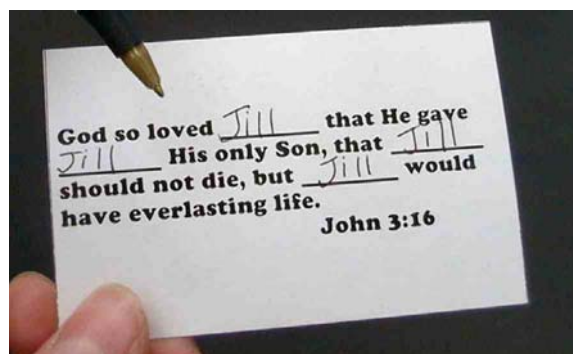 God so loved Jill that He gave
Jill His only Son, that Jill
should not die, but Jill would
have everlasting life.
John 3:16